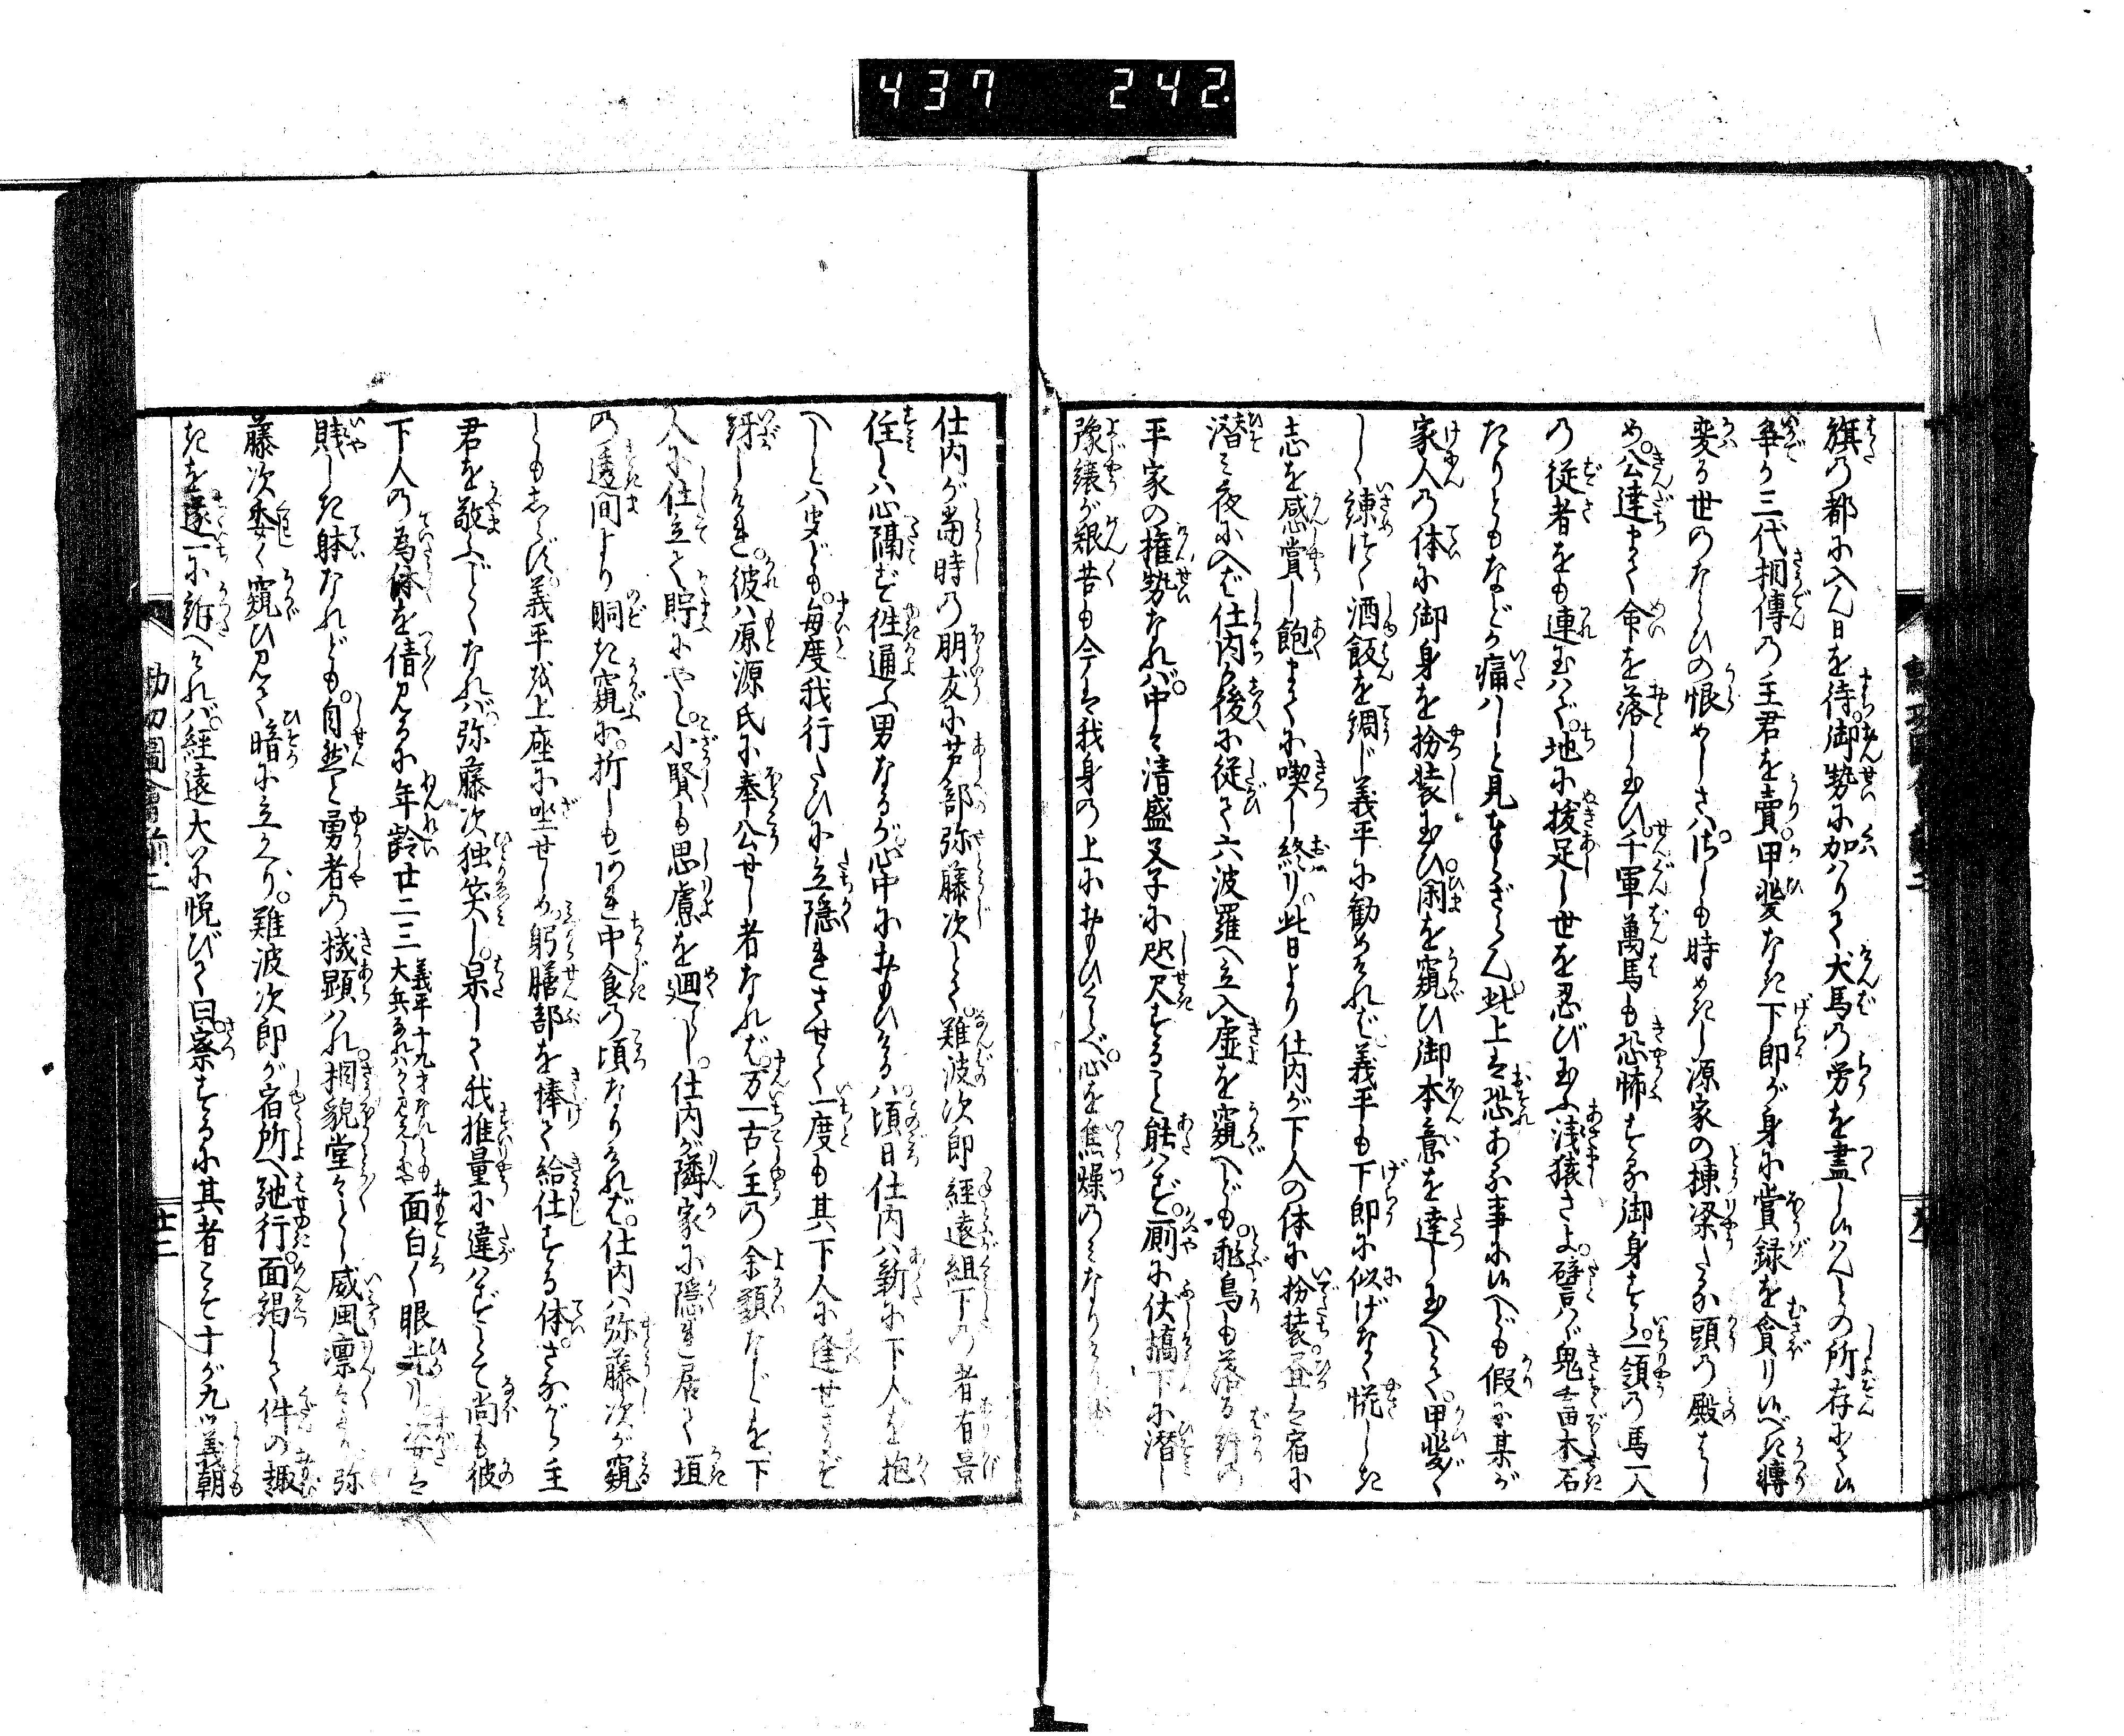 437 242.
旗の都に入ん日を待。御勢に加はりて犬馬の労を盡し候はんとの所存にて候
争か三代相傳の主君を賣。甲斐なき下郎が身に賞録を貪り候べき轉
変る世のならひの恨めしさは。さしも時めきし源家の棟梁たる頭の殿をはじ
め。公達まで命を落し玉ひ。千軍萬馬も恐怖する御身すら。一領の馬一人
の従者をも連玉はで。地に抜足し世を忍び玉ふ浅猿さよ。譬ば鬼畜木石
たりともなどか痛はしと見奉らざらん。此上は恐ある事に候へども假に某が
家人の体に御身を扮装玉ひ。閑を窺ひ御本意を達し玉へとて。甲斐〲
しく諫つゝ酒飯を調じ義平に勧めければ。義平も下郎に似げなく慌しき
志を感賞し飽までに喫し終り。此日より仕内が下人の体に扮装。昼は宿に
潜み夜に入ば仕内が後に従て六波羅へ立入虚を窺へども。飛鳥も落る計の
平家の権勢なれば。中々清盛父子に咫尺すること能はず。厠に伏橋下に潜し
豫譲が艱苦も今は我身の上におもひくらべ。心を焦燥のみなりける
仕内が當時の朋友に芦部弥藤次とて。難波次郎経遠組下の者有。景
住とは心隔ず徃通ふ男なるが心中におもひけるは。頃日仕内は新に下人を抱
へしとは聞ども。毎度我行たびに立隠れさせて一度も其下人に逢せざるぞ
訝しけれ。彼は原源氏に奉公せし者なれば。万一古主の余類などを。下
人に仕立て貯にやと。小賢も思慮を廻らし。仕内が隣家に隠れ居て垣
の透間より覘き窺に。折しもあれ中食の頃なりければ。仕内は弥藤次が窺
しもしらず。義平を上座に坐せしめ。躬膳部を捧て給仕する体。さながら主
君を敬ふごとくなれば。弥藤次独笑し。果して我推量に違はずとて尚も彼
下人の為体を倩見るに年齢廿二三義平十九才なれども大兵なればかく見えしにや面白く眼光り姿は
賎しき躰なれども。自然と勇者の機顕はれ。相貌堂々として威風凛々たり。弥
藤次委く窺ひ見て暗に立かへり。難波次郎が宿所へ馳行。面謁して件の趣
きを。逐一に訴へければ。経遠大に悦びて曰。察するに其者こそ十が九ツ義朝